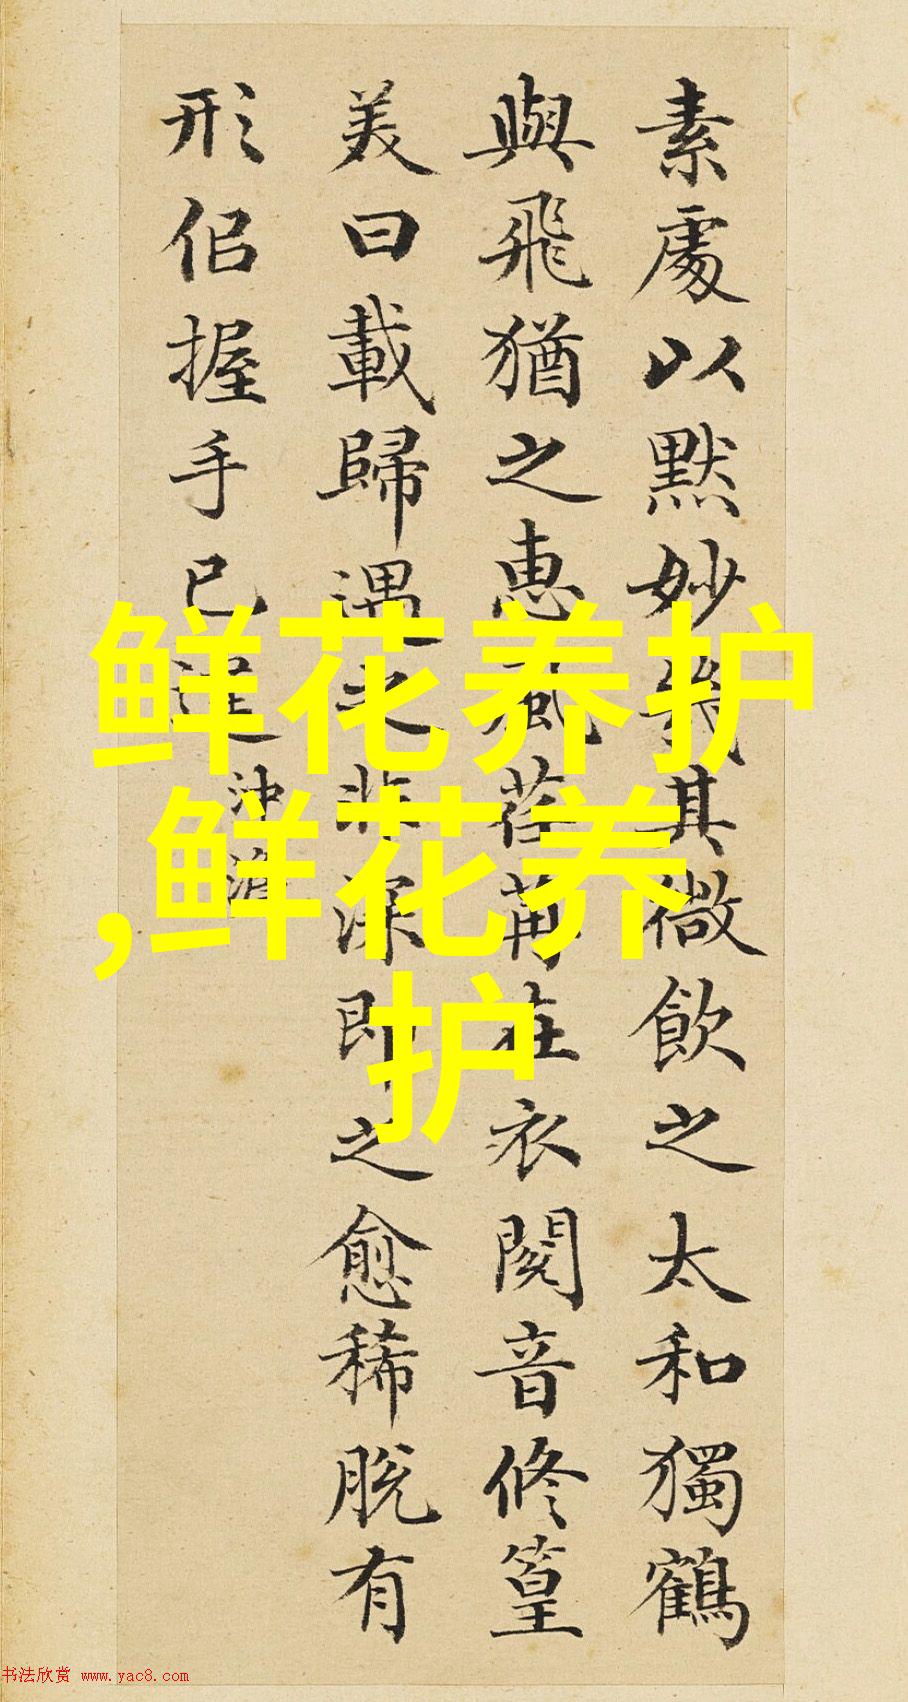 素處以默妙幾其微飲之太和獨鶴
與飛猶之惠風荏苒在衣閱音修篁
美曰載歸遇之非深即之愈稀脫有
形佀握手已違
沖澹
鲜花养护
,鲜花养
护
书法欣赏 www.yac8.com